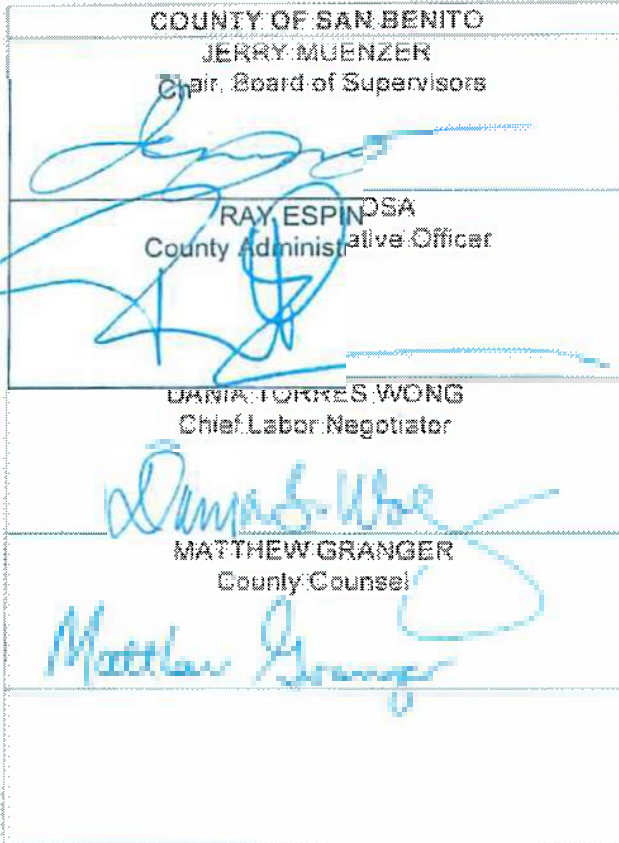 COUNTY OF SAN BENITO
JERRY MUENZER
Chair, Board of Supervisors
RAY ESPINOSA
County Administrative Officer
DANIA TORRES WONG
Chief Labor Negotiator
MATTHEW GRANGER
County Counsel
Matthew Granger